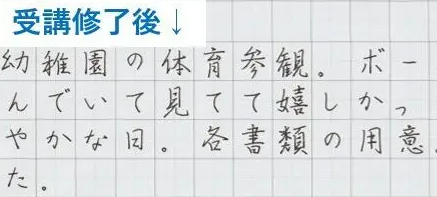 受講修了後↓
幼稚園の体育参観。ボー
んでいて見てて嬉しかっ
やかな日。各書類の用意。
た。